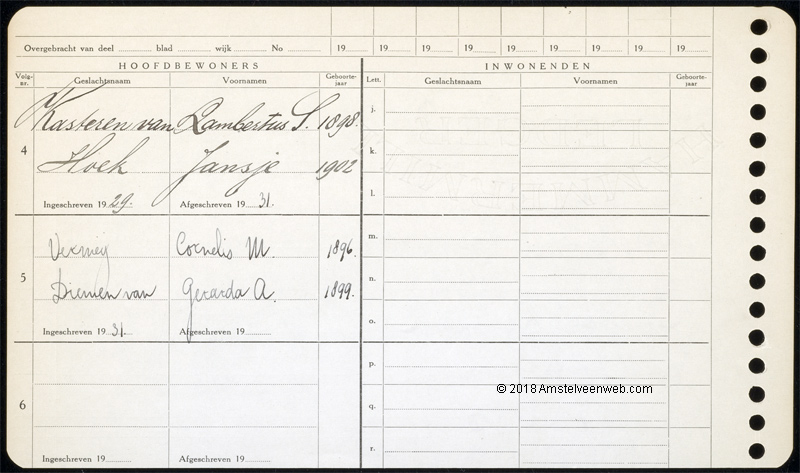 Overgebracht van deel blad wijk No 19 19 19 19 19 19 19 19 19
HOOFDBEWONERS INWONENDEN
Volg-nr. Geslachtsnaam Voornamen Geboorte-jaar Lett. Geslachtsnaam Voornamen Geboorte-jaar
4 Kasteren van Lambertus S. 1898. j.
Hoek Jansje 1902 k.
Ingeschreven 19 29. Afgeschreven 19 31. l.
5 Vermeij Cornelis M. 1896. m.
Diemen van Gerarda A. 1899. n.
Ingeschreven 19 31. Afgeschreven 19 o.
6 p.
© 2018 Amstelveenweb.com
q.
Ingeschreven 19 Afgeschreven 19 r.